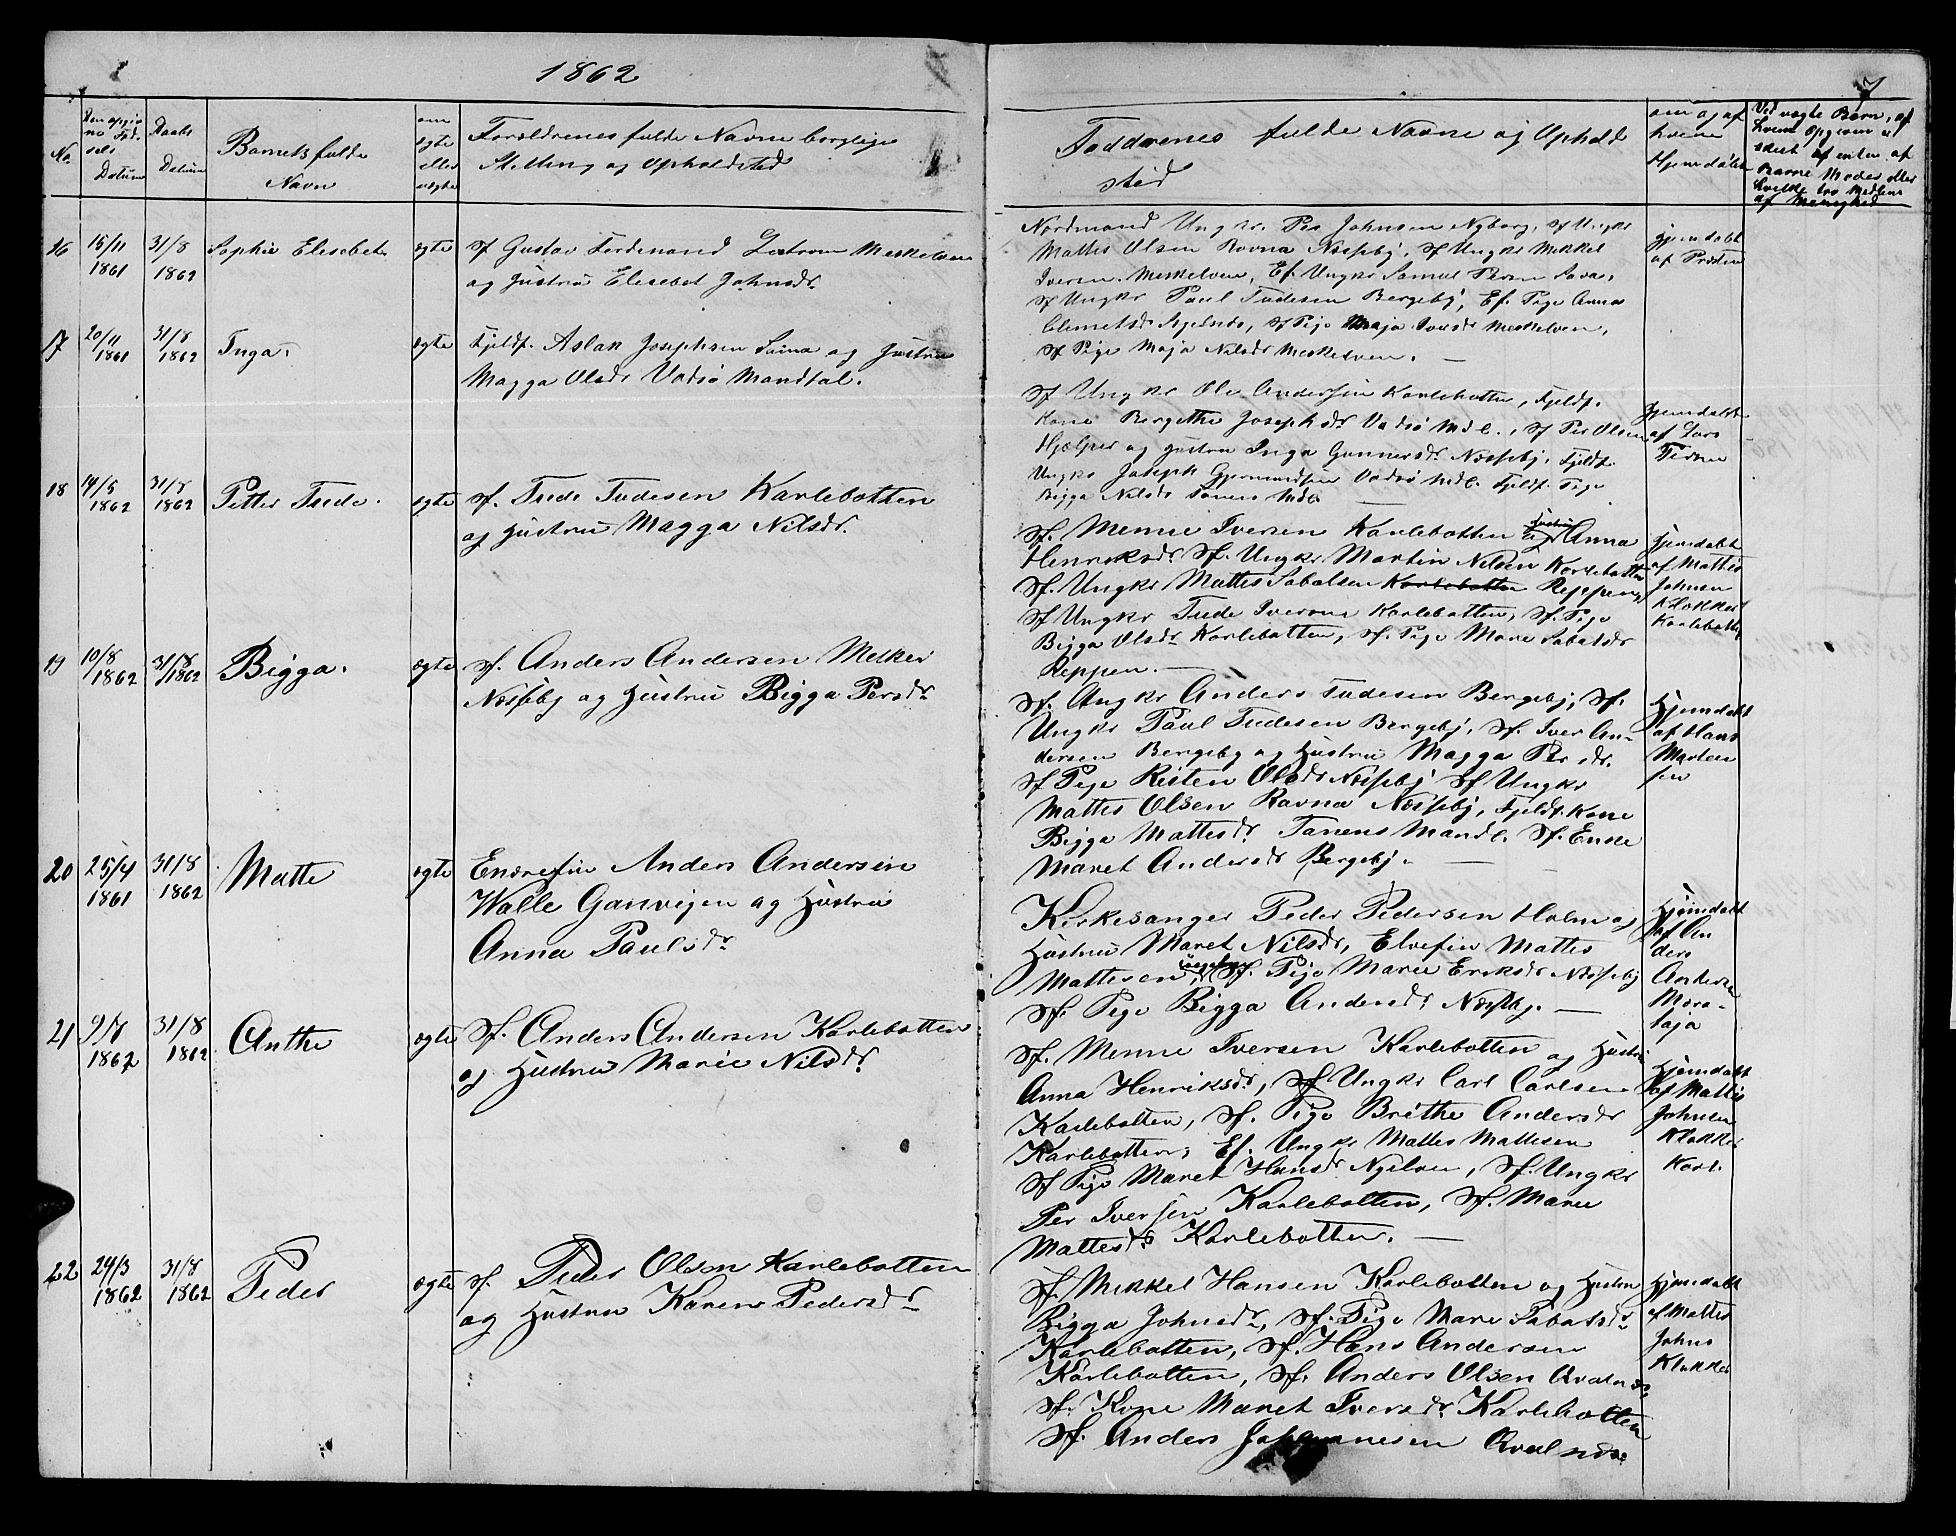 1862
7
No
Den opgiv
ne Fød
sels
Datum
Daabs
Datum
Barnets fulde
Navn
om
ægte
eller
uægte
Forældrenes fulde Navne borglige
Stilling og Opholdsted
Faddernes fulde Navne og Ophold
sted
om og af
hvem
Hjemdøbt
Ved uægte Børn, af
hvem Opgivn er
skeet af enten af
Barne Moder eller
hvilke tro Medlem
af Menighed
16
15/11
1861
31/8
1862
Sophie Elisebet
ægte
Sf Gustav Ferdinand Meskelven
og Hustru Elisebet Johnsdr
Nordmand Ungkr. Per Johnsen Nyborg, Sf Ungkr
Mattis Olsen Ravna Næsseby, Sf Ungkr Mikkel
Iversen Meskelven, Ef. Ungkr Samuel Persen
Sf Ungkr Paul Tudesen Bergeby, Ef. Pige Anna
Clemetsdr, Sf Pige Maja Iversdr Meskelven,
Sf Pige Maja Nilsdr Meskelven.
Hjemdøbt
af Præsten
17
20/11
1861
31/8
1862
Inga.
ægte
Fjeldf. Aslak Josephsen og Hustru
Magga Olsdr Vadsø Mandtal.
Sf Ungkr Ole Andersen Karlebotten, Fjeldf.
Kone Bergethe Josephsdr Vadsø Mdl., Sf Per Olsen
Hjelper og Hustru Inga Gunnersdr Næsseby, Fjeldf.
Ungkr Joseph Gjermundsen Vadsø Mdl. Fjeldf. Pige
Bigga Nilsdr Tanens Mdl.
Hjemdøbt
af Lars
18
14/5
1862
31/8
1862
Petter Tude.
ægte
Sf. Tude Tudesen Karlebotten
og Hustru Magga Nilsdr.
Sf. Menne Iversen Karlebotten og Hustru Anna
Henriksdr Sf. Ungkr Martin Nilsen Karlebotten
Sf. Ungkr Mattis Sabasen Karlebotten Reppen,
Sf Ungkr Tude Iversen Karlebotten, Sf. Pige
Bigga Olsdr Karlebotten, Sf. Pige Marie Sabasdr
Reppen.
Hjemdøbt
af Mattis
Johnsen
Klokker
Karlebotten
19
10/8
1862
31/8
1862
Bigga.
ægte
Sf. Anders Andersen Mesker
Næsseby og Hustru Bigga Persdr
Sf. Ungkr Anders Tudesen Bergeby, Sf.
Ungkr Paul Tudesen Bergeby, Sf. Iver An-
dersen Bergeby og Hustru Magga Persdr.
Sf Pige Risten Olsdr Næsseby Sf Ungkr
Mattis Olsen Ravna Næsseby, Fjeldf. Kone
Bigga Mattisdr Tanens Mandl. Sf. Enke
Maret Andersdr Bergeby.
Hjemdøbt
af Hans
Morten
sen
20
25/4
1861
31/8
1862
Matte
ægte
Enarefin Anders Andersen
Walle Ganvigen og Hustru
Anna Paulsdr
Kirkesanger Peder Pedersen Holm og
Hustru Maret Nilsdr, Elvefin Mattis
Mattisen, Sf. Pige Marie Eriksdr Næsseby
Sf. Pige Bigga Andersdr Næsseby.
Hjemdøbt
af An
ders
Andersen
Mora-
taja
21
9/8
1862
31/8
1862
Anthe
ægte
Sf. Anders Andersen Karlebotten
og Hustru Marie Nilsdr
Sf. Menne Iversen Karlebotten og Hustru
Anna Henriksdr, Sf Ungkr Carl Carlsen
Karlebotten, Sf. Pige Brithe Andersdr
Karlebotten, Ef. Ungkr Mattis Mattisen
Sf Pige Maret Hansdr Nyelven, Sf. Ungkr
Per Iversen Karlebotten, Sf. Marie
Mattisdr Karlebotten.
Hjemdøbt
af Mattis
Johnsen
Klokker
Karl.
22
29/3
1862
31/8
1862
Peder
ægte
Sf. Peder Olsen Karlebotten
og Hustru Karen Pedersdr
Sf. Mikkel Hansen Karlebotten og Hustru
Bigga Johnsdr, Sf. Pige Mari Sabasdr
Karlebotten, Sf. Hans Andersen
Karlebotten, Sf. Anders Olsen Qvalnæs,
Sf. Kone Maret Iversdr. Karlebotten
Sf. Anders Johannesen Qvalnæs
Hjemdøbt
af Mattis
Johns
Klokker